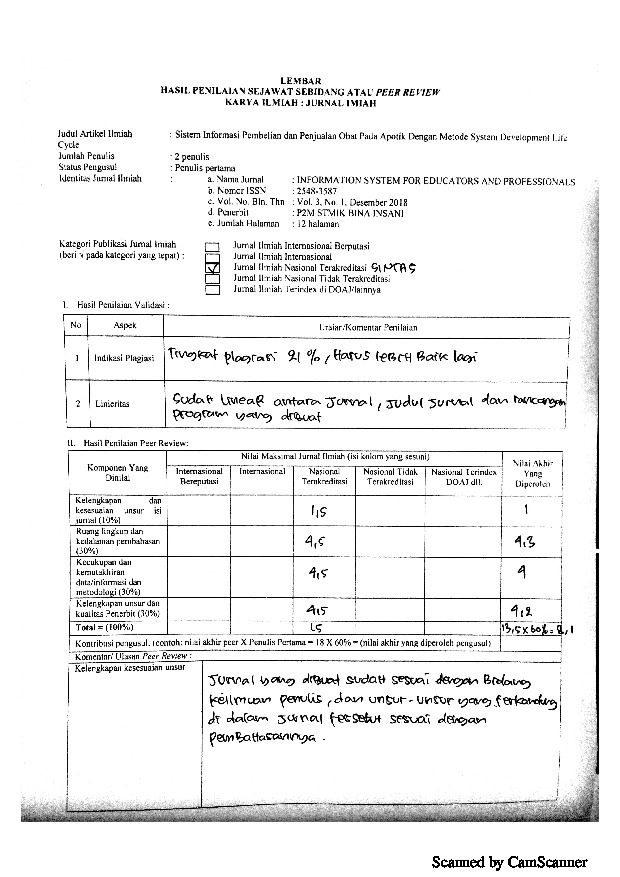 LEMBAR
HASIL PENILAIAN SEJAWAT SEBIDANG ATAU PEER REVIEW
KARYA ILMIAH : JURNAL IMIAH
Judul Artikel Ilmiah : Sistem Informasi Pembelian dan Penjualan Obat Pada Apotik Dengan Metode System Development Life
Cycle
Jumlah Penulis : 2 penulis
Status Pengusul : Penulis pertama
Identitas Jurnal Ilmiah : a. Nama Jurnal : INFORMATION SYSTEM FOR EDUCATORS AND PROFESSIONALS
b. Nomor ISSN : 2548-3587
c. Vol. No. Bln. Thn : Vol. 3, No. 1, Desember 2018
d. Penerbit : P2M STMIK BINA INSANI
e. Jumlah Halaman : 12 halaman
Kategori Publikasi Jurnal Ilmiah Jurnal Ilmiah Internasional Berputasi
(beri v pada kategori yang tepat) : Jurnal Ilmiah Internasional
Jurnal Ilmiah Nasional Terakreditasi SINTA5
Jurnal Ilmiah Nasional Tidak Terakreditasi
Jurnal Ilmiah Terindex di DOAJ/lainnya
I. Hasil Penilaian Validasi :
No Aspek Uraian/Komentar Penilaian
1 Indikasi Plagiasi Tingkat plagiasi 21 %, Harus lebih Baik lagi
2 Linieritas Sudah linear antara Jurnal, Judul Jurnal dan rancangan
program yang dibuat
II. Hasil Penilaian Peer Review:
Komponen Yang Dinilai Nilai Maksimal Jurnal Ilmiah (isi kolom yang sesuai) Nilai Akhir Yang Diperoleh
Internasional Bereputasi Internasional Nasional Terakreditasi Nasional Tidak Terakreditasi Nasional Terindex DOAJ dll.
Kelengkapan dan
kesesuaian unsur isi
jurnal (10%) 1,5 1
Ruang lingkup dan
kedalaman pembahasan
(30%) 4,5 4,3
Kecukupan dan
kemutakhiran
data/informasi dan
metodologi (30%) 4,5 4
Kelengkapan unsur dan
kualitas Penerbit (30%) 4,5 4,2
Total = (100%) 15 13,5 x 60% = 8,1
Kontribusi pengusul. (contoh: nilai akhir peer X Penulis Pertama = 18 X 60% = (nilai akhir yang diperoleh pengusul)
Komentar/ Ulasan Peer Review :
Kelengkapan kesesuaian unsur Jurnal yang dibuat sudah sesuai dengan Bidang
keilmuan penulis, dan unsur-unsur yang terkandung
di dalam Jurnal tersebut sesuai dengan
pembahasannya.
Scanned by CamScanner